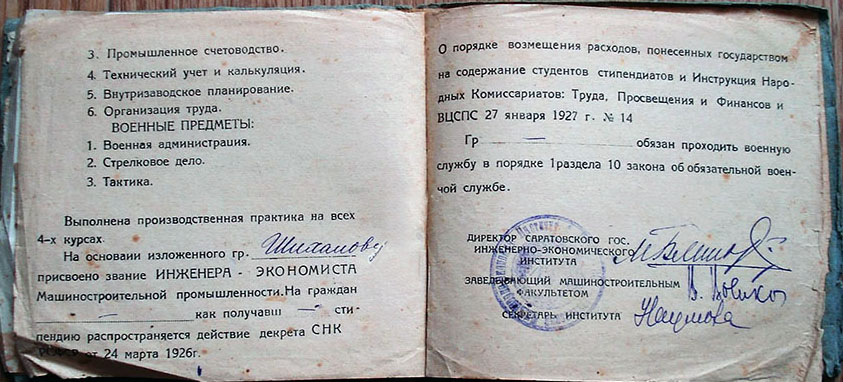 3. Промышленное счетоводство.
4. Технический учет и калькуляция.
5. Внутризаводское планирование.
6. Организация труда.
ВОЕННЫЕ ПРЕДМЕТЫ:
1. Военная администрация.
2. Стрелковое дело.
3. Тактика.
Выполнена производственная практика на всех
4-х курсах.
На основаии изложенного гр. Шиханову
присвоено звание ИНЖЕНЕРА - ЭКОНОМИСТА
Машиностроительной промышленности. На граждан
— как получавш — сти-
пендию распространяется действие декрета СНК
РСФСР от 24 марта 1926г.
О порядке возмещения расходов, понесенных государством
на содержание студентов стипендиатов и Инструкция Наро-
дных Комиссариатов: Труда, Просвещения и Финансов и
ВЦСПС 27 января 1927 г. № 14
Гр — обязан проходить военную
службу в порядке 1раздела 10 закона об обязательной воен-
ной службе.
ДИРЕКТОР САРАТОВСКОГО ГОС.
ИНЖЕНЕРНО-ЭКОНОМИЧЕСКОГО
ИНСТИТУТА
ЗАВЕДЕВАЮЩИЙ МАШИНОСТРОИТЕЛЬНЫМ
ФАКУЛЬТЕТОМ
СЕКРЕТАРЬ ИНСТИТУТА Наумова